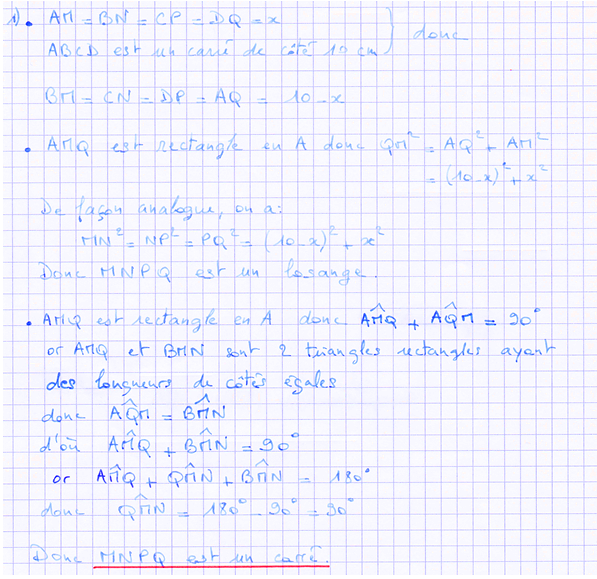 1). • AM = BN = CP = DQ = x
ABCD est un carré de côté 10 cm } donc
BM = CN = DP = AQ = 10 - x
• AMQ est rectangle en A donc QM² = AQ² + AM²
= (10 - x)² + x²
De façon analogue, on a :
MN² = NP² = PQ² = (10 - x)² + x²
Donc MNPQ est un losange.
• AMQ est rectangle en A donc AM̂Q + AQ̂M = 90°
or AMQ et BMN sont 2 triangles rectangles ayant
des longueurs de côtés égales
donc AQ̂M = BM̂N
d'où AM̂Q + BM̂N = 90°
or AM̂Q + QM̂N + BM̂N = 180°
donc QM̂N = 180° - 90° = 90°
Donc MNPQ est un carré.